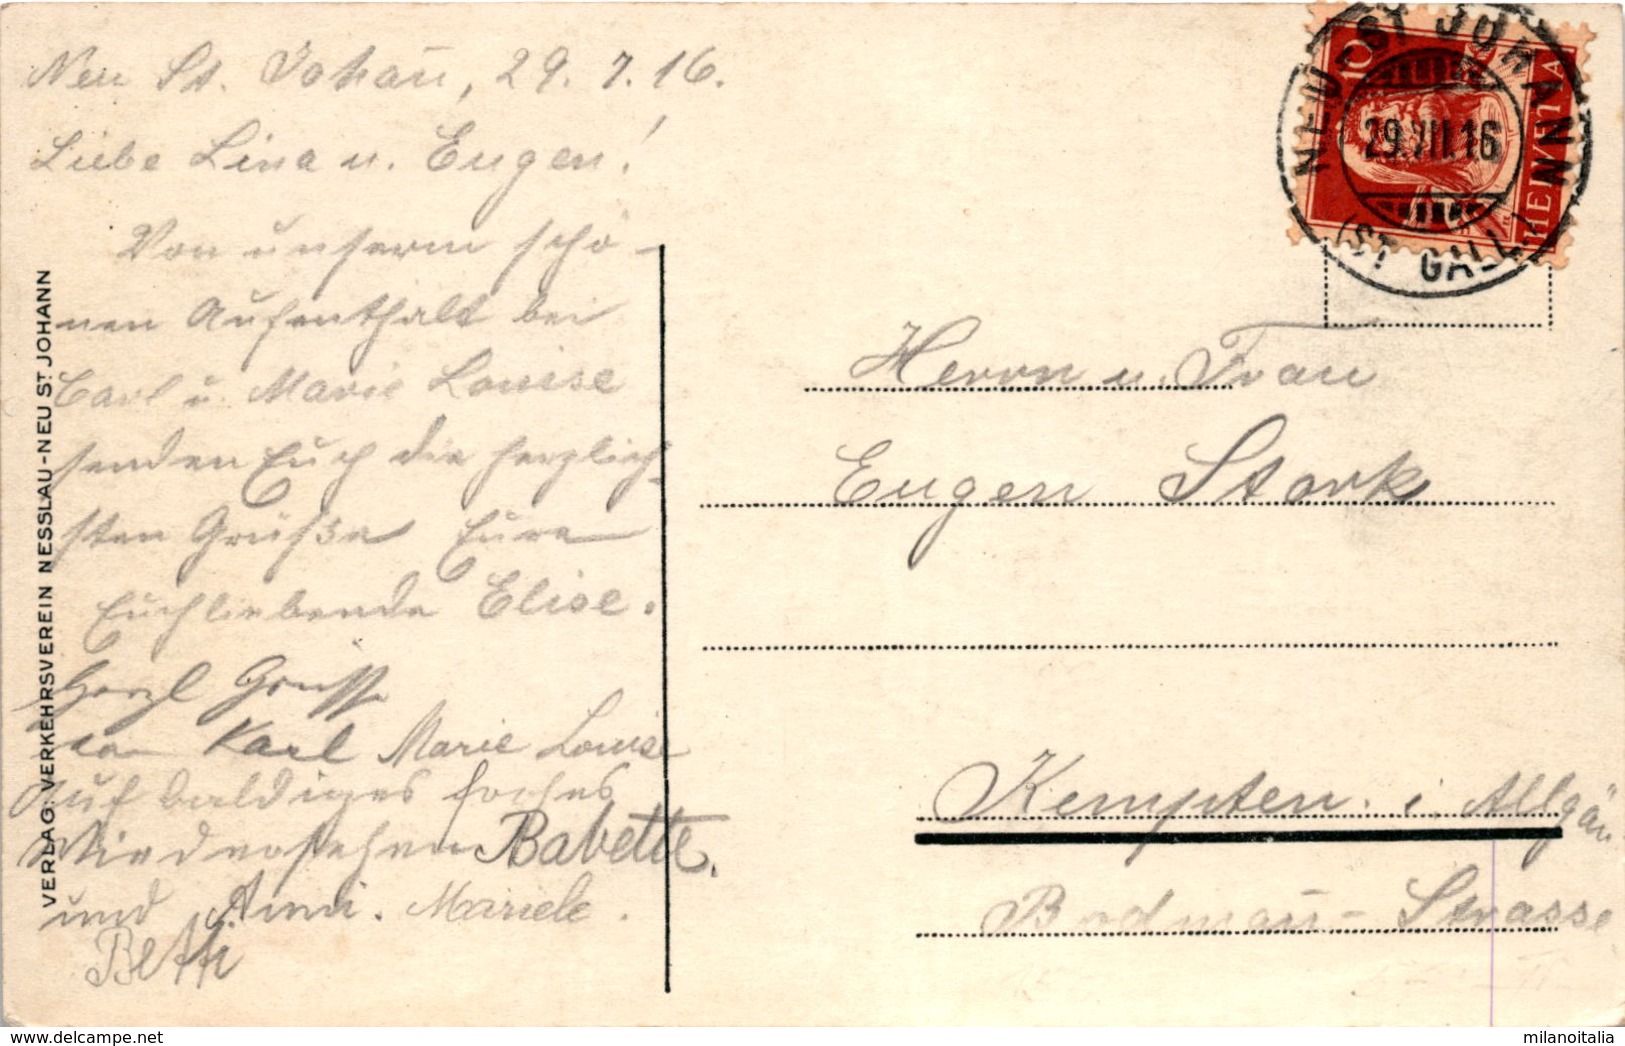 Neu St. Johañ, 29. 7. 16.
Liebe Lina u. Eugen!
Von unserm schö-
nen Aufenthalt bei
Carl u. Marie Louise
senden Euch die herzlich-
sten Grüße Eure
Euchliebende Elise.
Herzl Grüsse
von Karl Marie Louise
Auf baldiges frohes
Wiedersehen Babette.
und Anni. Mariele.
Bethi
VERLAG: VERKEHRSVEREIN NESSLAU-NEU ST JOHANN
NEU ST JOHANN
29.VII.16
(ST GALL)
10
HELVETIA
Herrn u. Frau
Eugen Stark
Kempten i. Allgäu
Bodmañ-Strasse
milanoitalia